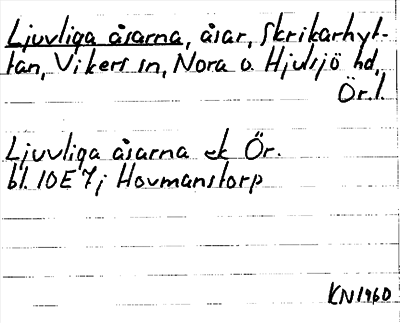 Ljuvliga åsarna, åsar, Skrikarhyt-
tan, Vikers sn, Nora o. Hjulsjö hd,
Ör. l.
Ljuvliga åsarna ek Ör.
bl. 10E 7j Hovmanstorp
KN1960